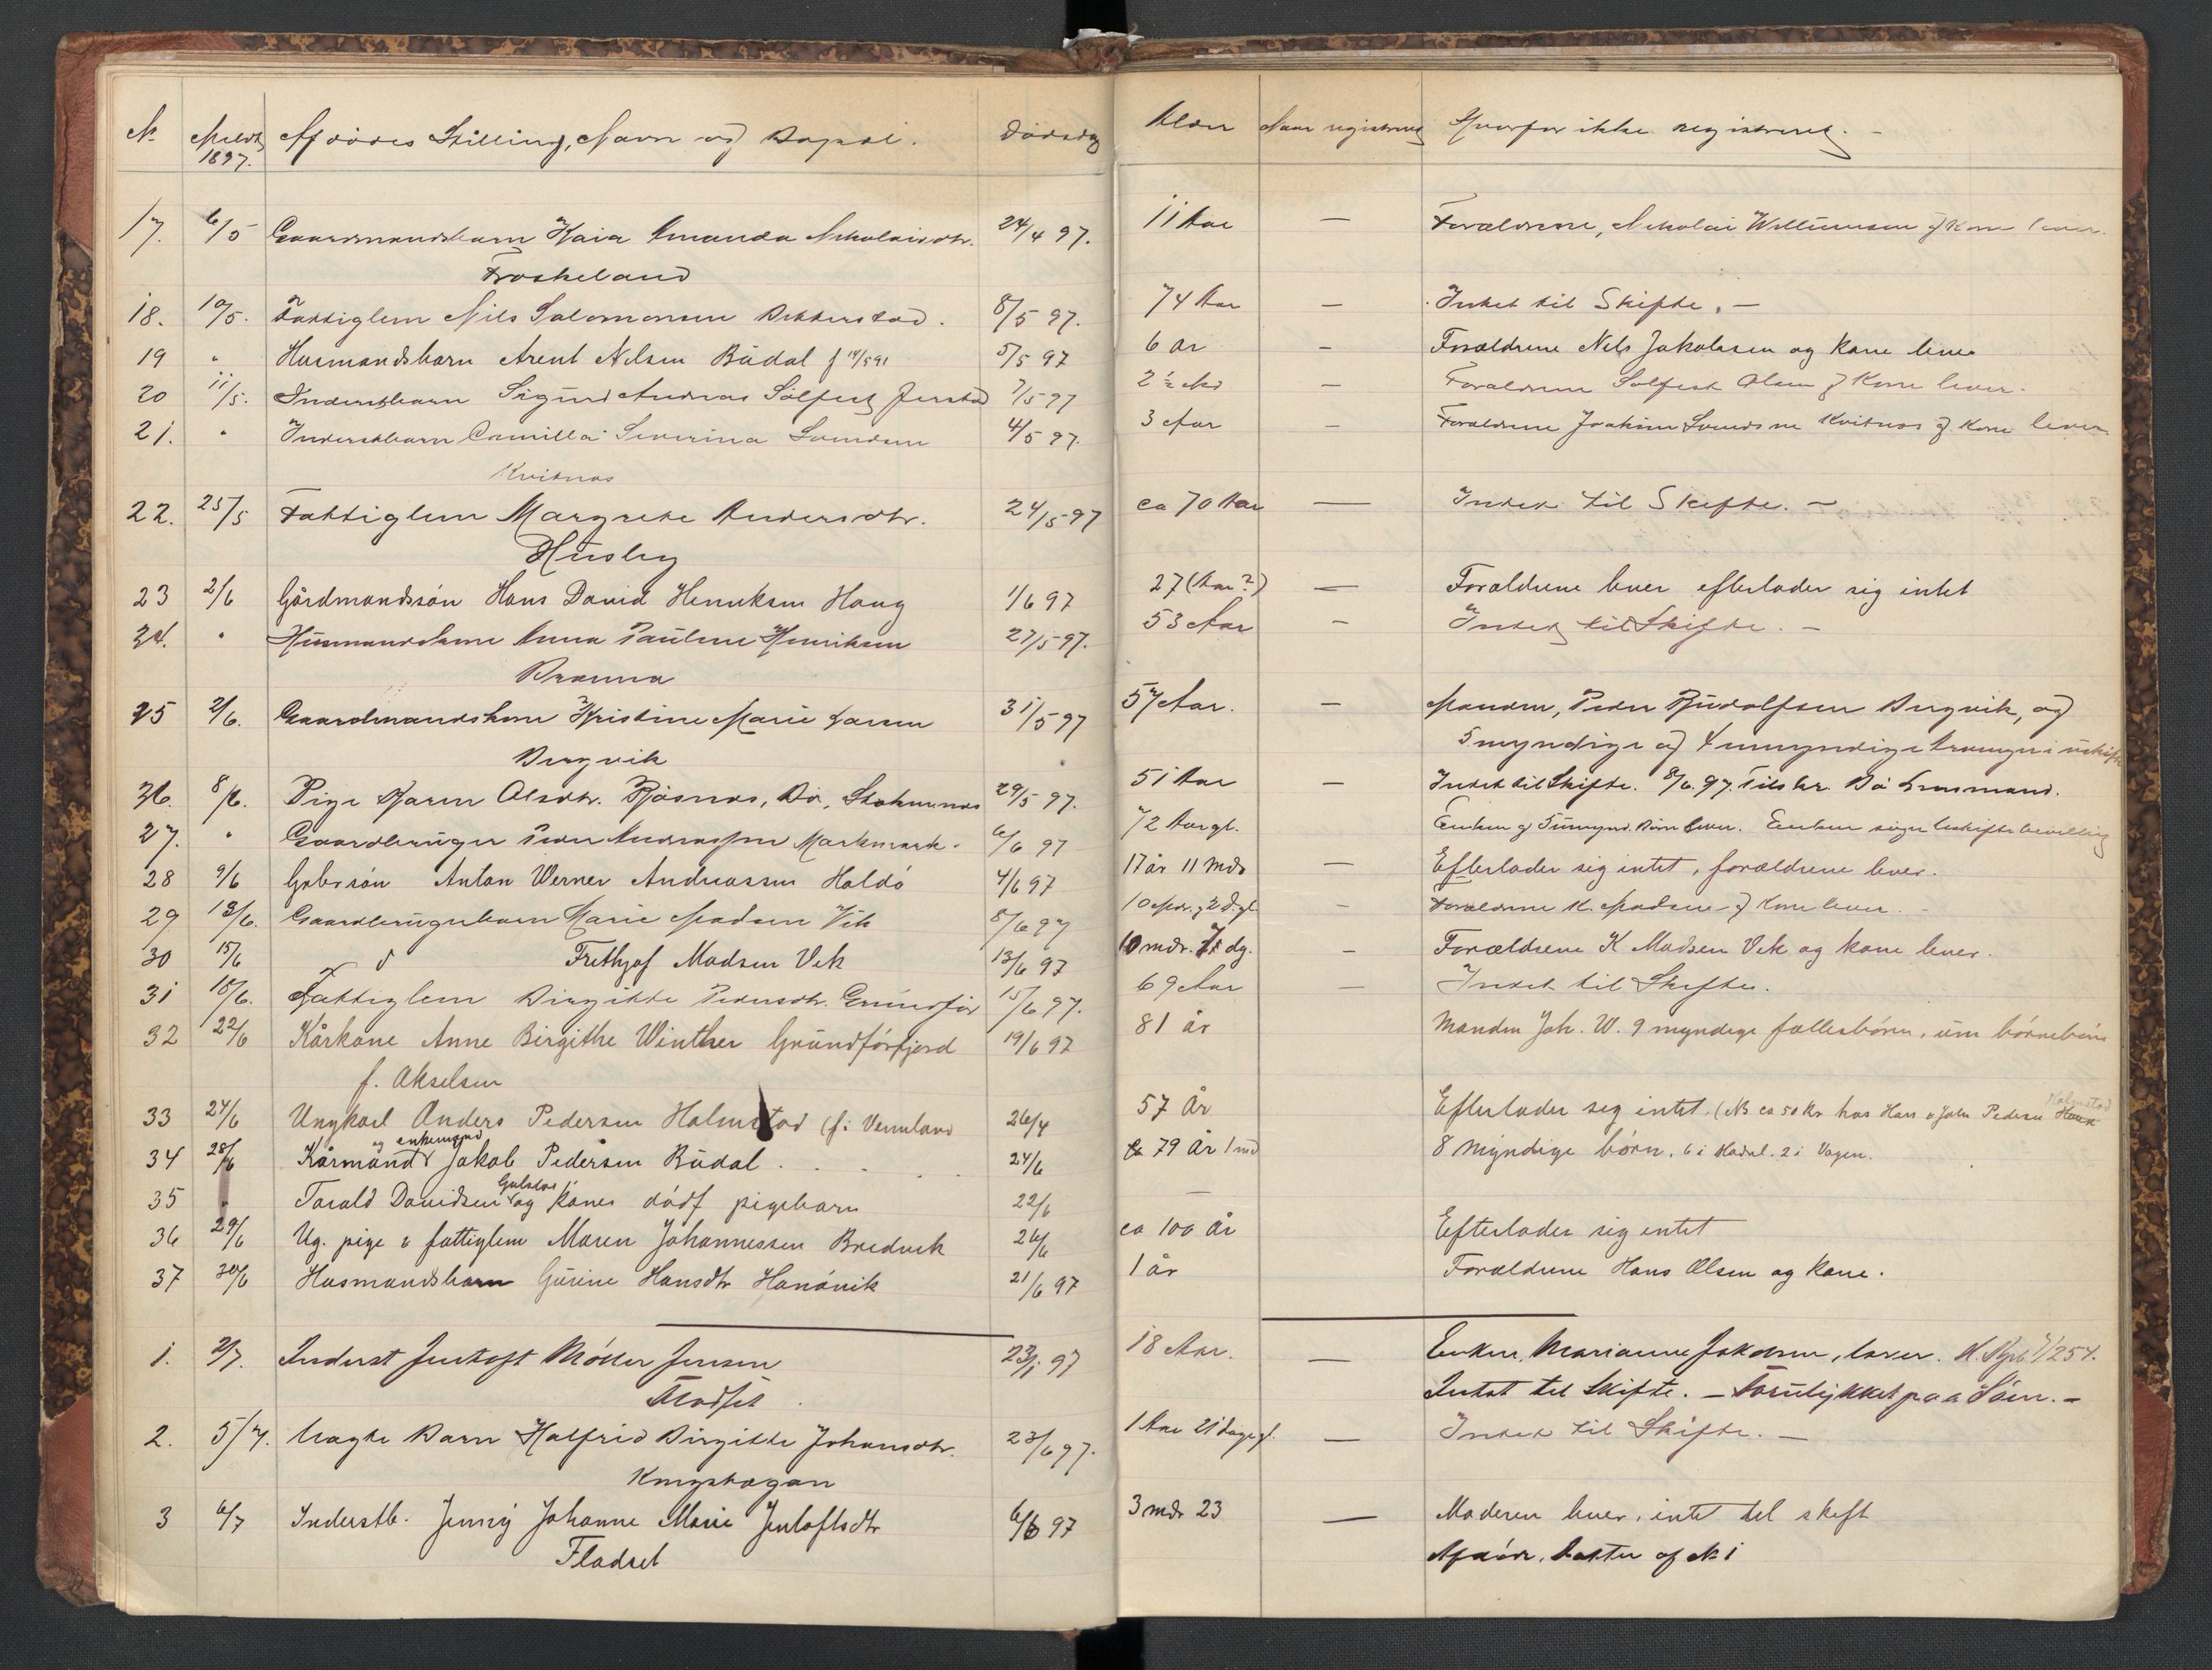 No Meldt 1897. Afdödes Stilling, Navn og Bopæl. Dödsdag Alder Naar registreret Hvorfor ikke registreret. -
17. 6/5 Gaardmandsbarn Kaia Amanda Nikolaisdtr. 24/4 97. 11 Aar — Forældrene, Nikolai Williumsen og Kone lever.
Froskeland
18. 10/5. Fattiglem Nils Salomonsen Bitterstad. 8/5 97. 74 Aar — Intet til Skifte. —
19 " Husmandsbarn Arent Nilsen Budal f 14/5 91 5/5 97 6 år - Forældrene Nils Jakobsen og kone lever
20 11/5. Inderstbarn Sigurd Andreas Solfest Jerstad 7/5 97 2 ½ Md — Forældrene Solfest Olsen og Kone lever.
21. " Inderstbarn Camilla Severina Svendsen 4/5 97. 3 Aar — Forældrene Joakim Svendsen Kvitnes og Kone lever.
Kvitnes
22. 25/5 Fattiglem Margrete Andersdtr. 24/5 97 ca 70 Aar — Intet til Skifte. —
Husby
23 2/6 Gårdmandssön Hans David Henriksen Haug 1/6 97 27 (Aar?) — Forældrene lever efterlader sig intet
24. " Husmandskone Anna Pauline Henriksen 27/5 97. 53 Aar - Intet til Skifte. —
Brænna
25 2/6. Gaardmandskone Kristine Marie Larsen 31/5 97 57 Aar. — Manden, Peder Rudolfsen Bergvik, og
Bergvik 5 myndige og 4 umyndige i uskifte
26. 8/6. Pige Karen Olsdtr. Bö, Stokmarknes 29/5 97. 51 Aar — Intet til Skifte. 8/6 97. Bö Lensmand.
27. " Gaardbruger Peder Andreassen 6/6 97 72 Aar gl. Enken og 5 umynd. Börn lever. Enken söger uskiftebevilling
28 9/6 Gbrsön Antan Werner Andreassen Haldö 4/6 97 17 år 11 mdr — Efterlader sig intet, forældrene lever.
29 13/6. Gaardbrugerbarn Marie Madsen Vik 8/6 97 10 Mdr. og 2 D. gl. — Forældrene K. Madsen og Kone lever. -
30 15/6 " Frethjof Madsen Vik 13/6 97 10 mdr. 7 dg. — Forældrene K Madsen Vik og kone lever.
31 18/6. Fattiglem Birgitte Pedersdtr. Grundför 15/6 97. 69 Aar — Intet til Skifte.
32 22/6 Kårkone Anne Birgithe Winther Grundförfjord 19/6 97 81 år Manden Joh. W. 9 myndige fællesbörn, um börnebörn
f. Akselsen
33 24/6 Ungkarl Anders Pedersen Halmstad (f. i Vermland 26/4 57 År Efterlader sig intet. (Nb ca 50 Kr hos Hans & John Pedersen Halmstad
34 28/6 Kårmand og enkemand Jakob Pedersen Budal . . . . 24/6 79 År 1 md 8 Myndige börn. 6 i Hadsel. 2 i Vågan.
35 " Tarald Davidsen og kones dödf pigebarn 22/6 —
36 29/6 Ug. pige & fattiglem Maren Johannessen Bredvik 26/6 ca 100 år Efterlader sig intet
37 30/6 Husmandsbarn Gurine Hansdtr Hanövik 21/6 97 1 år Forældrene Hans Olsen og kone.
1. 2/7. Inderst Jentoft Möller Jensen 23/1 97 18 Aar. — Enken, Marianne Jakobsen, lever.
Fladset. Intet til Skifte. — Forulykket paa Söen. —
2. 5/7. Uægte Barn Halfrid Birgitte Johansdtr. 23/6 97. 1 Aar 21 dage gl. — Intet til Skifte. —
Kongshagan
3 6/7 Inderstb. Jenny Johanne Marie Jentoftsdtr 6/6 97 3 mdr 23 — Moderen lever, intet til skift
Fladset Afdöde, Datter af No 1